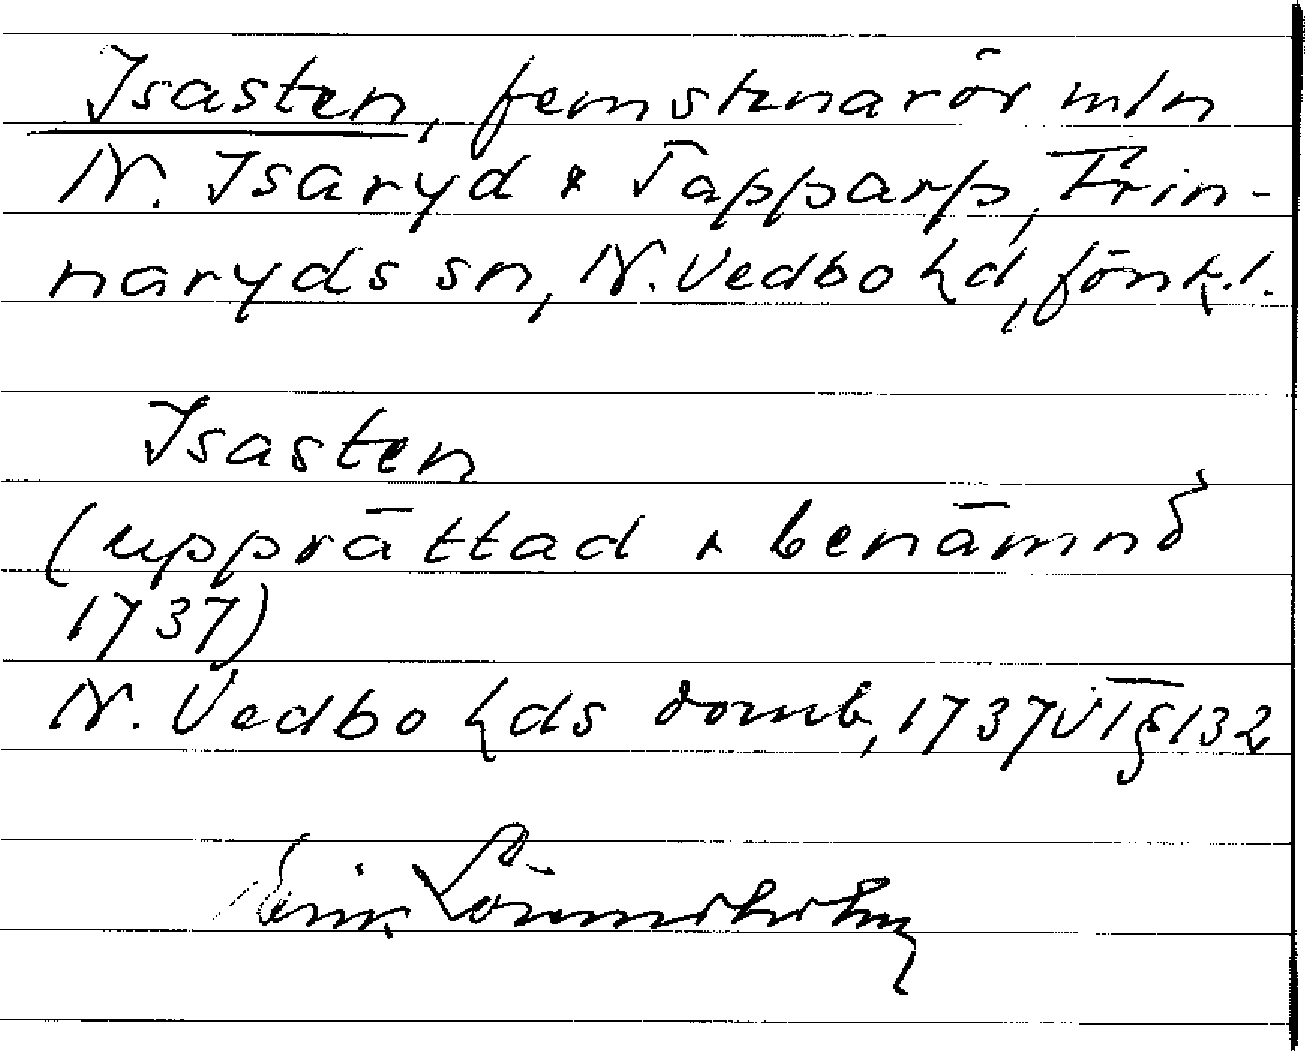 Isasten, femstenarör mln
N. Isaryd & Tapparp, Frin-
naryds sn, N. Vedbo hd, Jönk. l.
Isasten
(upprättad & benämnd
1737)
N. Vedbo hds domb, 1737 VI § 132
Erik